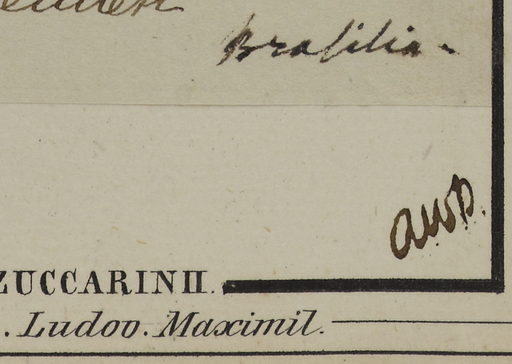 Brasilia.
ZUCCARINII.
. Ludov. Maximil.